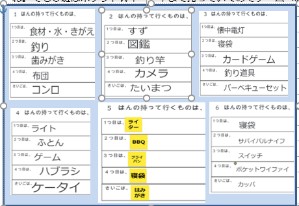 2 はんの持って行くものは、
3 はんの持って行くものは、
1つ目は、 食材・水・きがえ
2つ目は、 釣り
3つ目は、 歯みがき
4つ目は、 布団
さいごは、 コンロ
1つ目は、 すず
2つ目は、 図鑑
3つ目は、 釣り竿
4つ目は、 カメラ
さいごは、 たいまつ
1つ目は、 懐中電灯
2つ目は、 寝袋
3つ目は、 カードゲーム
4つ目は、 釣り道具
さいごは、 バーベキューセット
4 はんの持って行くものは、
1つ目は、 ライト
2つ目は、 ふとん
3つ目は、 ゲーム
4つ目は、 ハブラシ
さいごは、 ケータイ
5 はんの持って行くものは、
1つ目は、 ライター
2つ目は、 BBQ
3つ目は、 フライパン
4つ目は、 寝袋
さいごは、 はみがき
6 はんの持って行くものは、
1つ目は、 寝袋
2つ目は、 サバイバルナイフ
3つ目は、 スイッチ
4つ目は、 ポケットワイファイ
さいごは、 カッパ